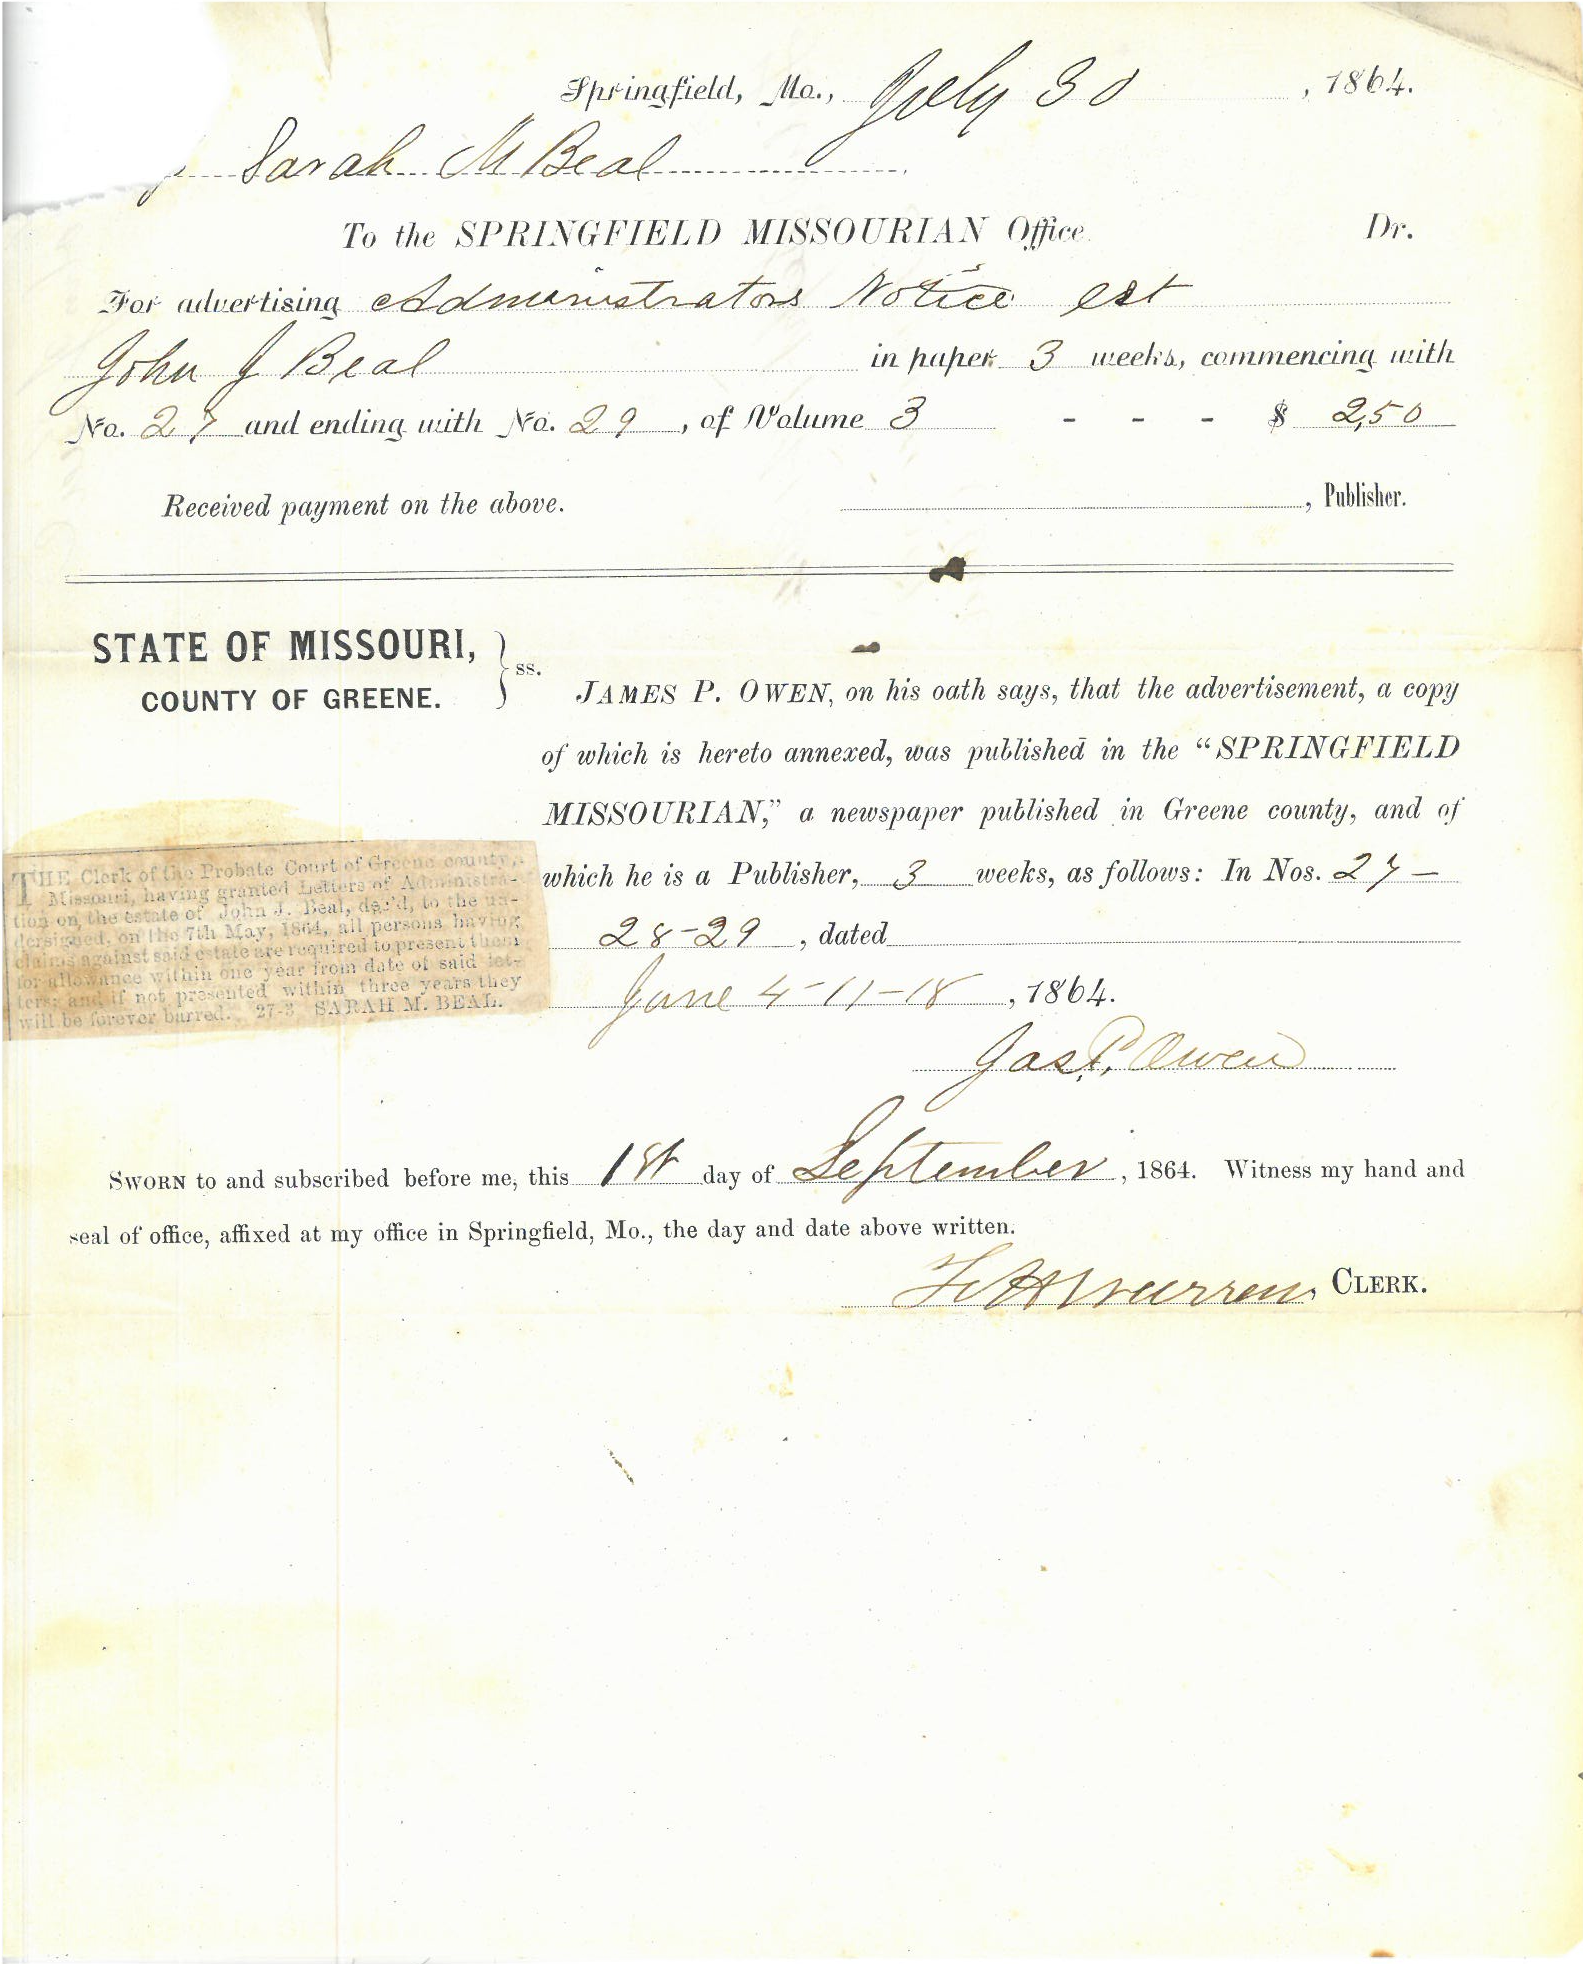 Springfield, Mo., July 30, 1864.
Sarah M Beal
To the SPRINGFIELD MISSOURIAN Office. Dr.
For advertising Administrators Notice est
John J Beal in paper 3 weeks, commencing with
No. 27 and ending with No. 29, of Volume 3 - - - $ 2,50
Received payment on the above. , Publisher.
STATE OF MISSOURI,
COUNTY OF GREENE. } ss.
JAMES P. OWEN, on his oath says, that the advertisement, a copy
of which is hereto annexed, was published in the “SPRINGFIELD
MISSOURIAN,” a newspaper published in Greene county, and of
which he is a Publisher, 3 weeks, as follows: In Nos. 27-
28-29, dated
June 4-11-18, 1864.
Jas. P. Owen
THE Clerk of the Probate Court of Greene county,
Missouri, having granted Letters of Administra-
tion on the estate of John J. Beal, dec'd, to the un-
dersigned, on the 7th May, 1864, all persons having
claims against said estate are required to present them
for allowance within one year from date of said let-
ters; and if not presented within three years they
will be forever barred. 27-3 SARAH M. BEAL.
SWORN to and subscribed before me, this 1st day of September, 1864. Witness my hand and
seal of office, affixed at my office in Springfield, Mo., the day and date above written.
Warren, CLERK.